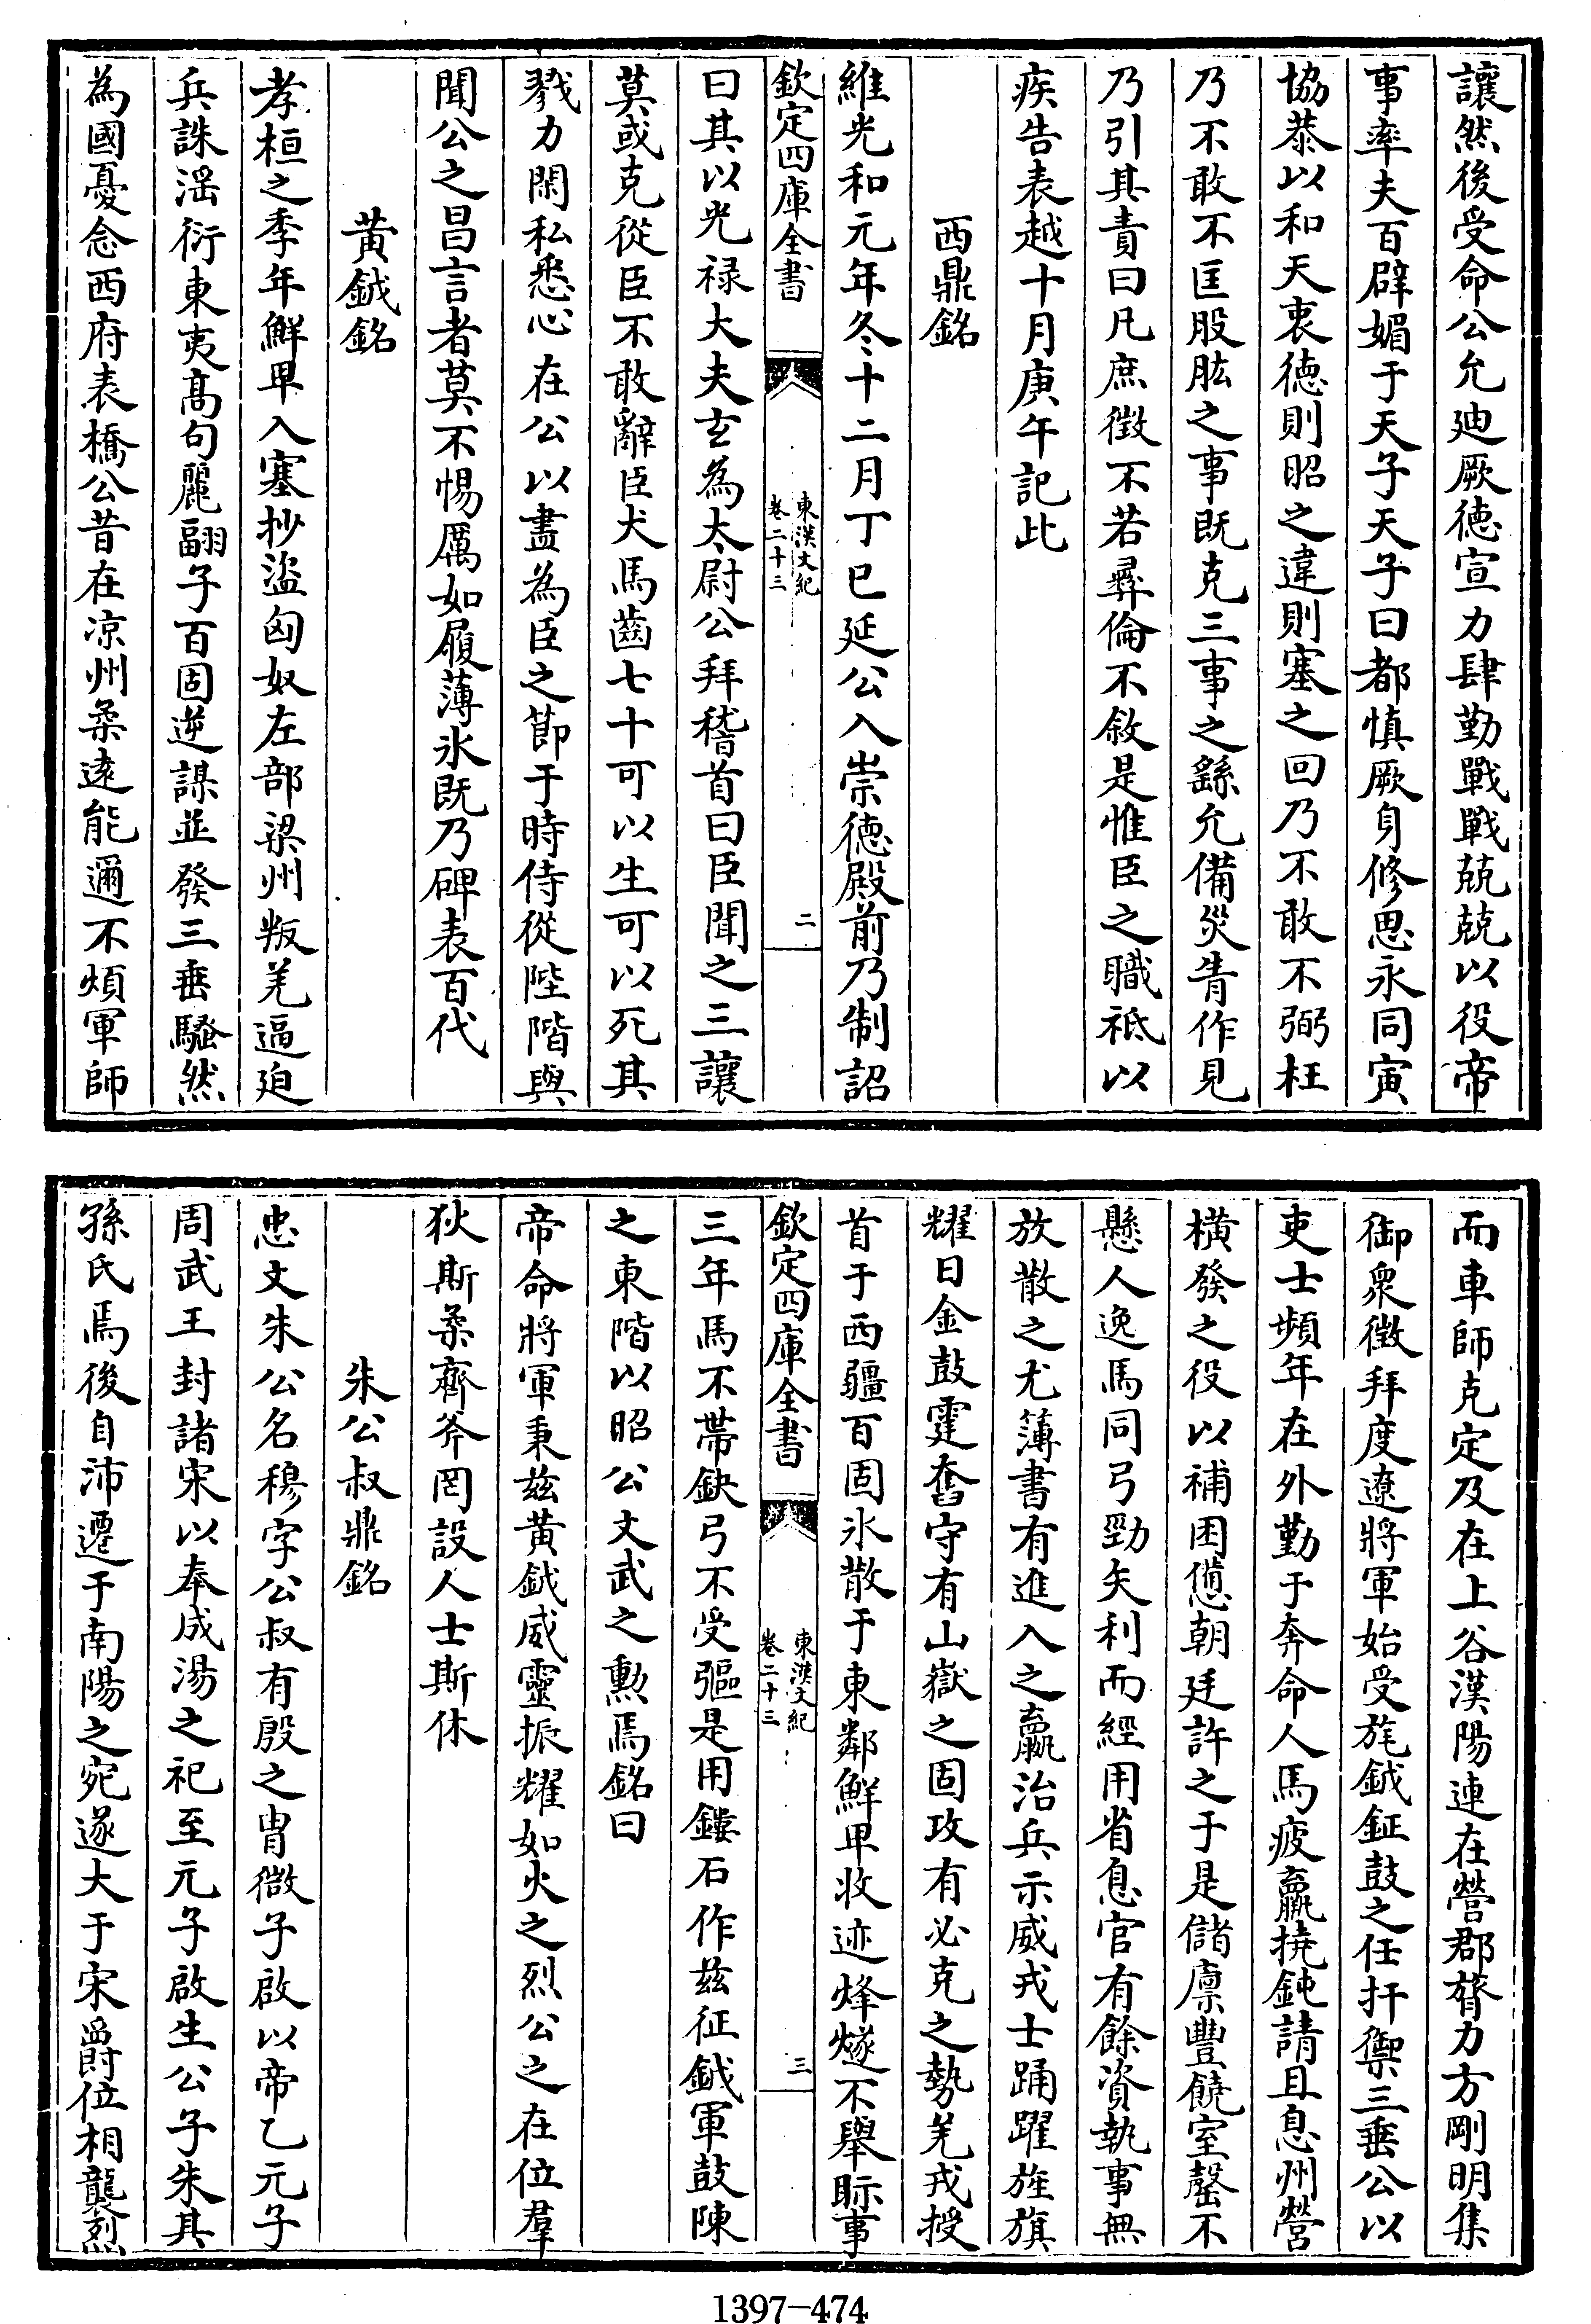 讓然後受命公允廸厥徳宣力肆勤戰戰兢兢以役帝
事率夫百辟媚于天子天子曰都慎厥身修思永同寅
協恭以和天衷徳則昭之違則塞之回乃不敢不弼枉
乃不敢不匡股肱之事既克三事之繇允備災眚作見
乃引其責曰凡庶徴不若彛倫不敘是惟臣之職祗以
疾告表越十月庚午記此
西鼎銘
維光和元年冬十二月丁巳延公入崇徳殿前乃制詔
欽定四庫全書
東漢文紀
卷二十三
二
曰其以光禄大夫𤣥為太尉公拜稽首曰臣聞之三讓
莫或克從臣不敢辭臣犬馬齒七十可以生可以死其
戮力閑私悉心在公以盡為臣之節于時侍從陛階與
聞公之昌言者莫不惕厲如履薄氷既乃碑表百代
黄鉞銘
孝桓之季年鮮卑入塞抄盜匈奴左部梁州叛羌逼廹
兵誅淫衍東夷髙句麗嗣子百固逆謀並發三垂騷然
為國憂念西府表橋公昔在凉州柔逺能邇不煩軍師
而車師克定及在上谷漢陽連在營郡膂力方剛明集
御衆徴拜度遼將軍始受旄鉞鉦鼓之任扞禦三垂公以
吏士頻年在外勤于奔命人馬疲羸撓鈍請且息州營
横發之役以補困憊朝廷許之于是儲廪豐饒室罄不
懸人逸馬同弓勁矢利而經用省息官有餘資執事無
放散之尤簿書有進入之羸治兵示威戎士踊躍旌旗
耀日金鼓霆奮守有山嶽之固攻有必克之勢羌戎授
首于西疆百固氷散于東鄰鮮卑收迹烽燧不舉眎事
欽定四庫全書
東漢文紀
卷二十三
三
三年馬不帶鈌弓不受彄是用鏤石作兹征鉞軍鼓陳
之東階以昭公文武之勲焉銘曰
帝命將軍秉兹黄鉞威靈振耀如火之烈公之在位羣
狄斯柔齊斧罔設人士斯休
朱公叔鼎銘
忠文朱公名穆字公叔有殷之胄微子啟以帝乙元子
周武王封諸宋以奉成湯之祀至元子啟生公子朱其
孫氏焉後自沛遷于南陽之宛遂大于宋爵位相襲烈
1397—474